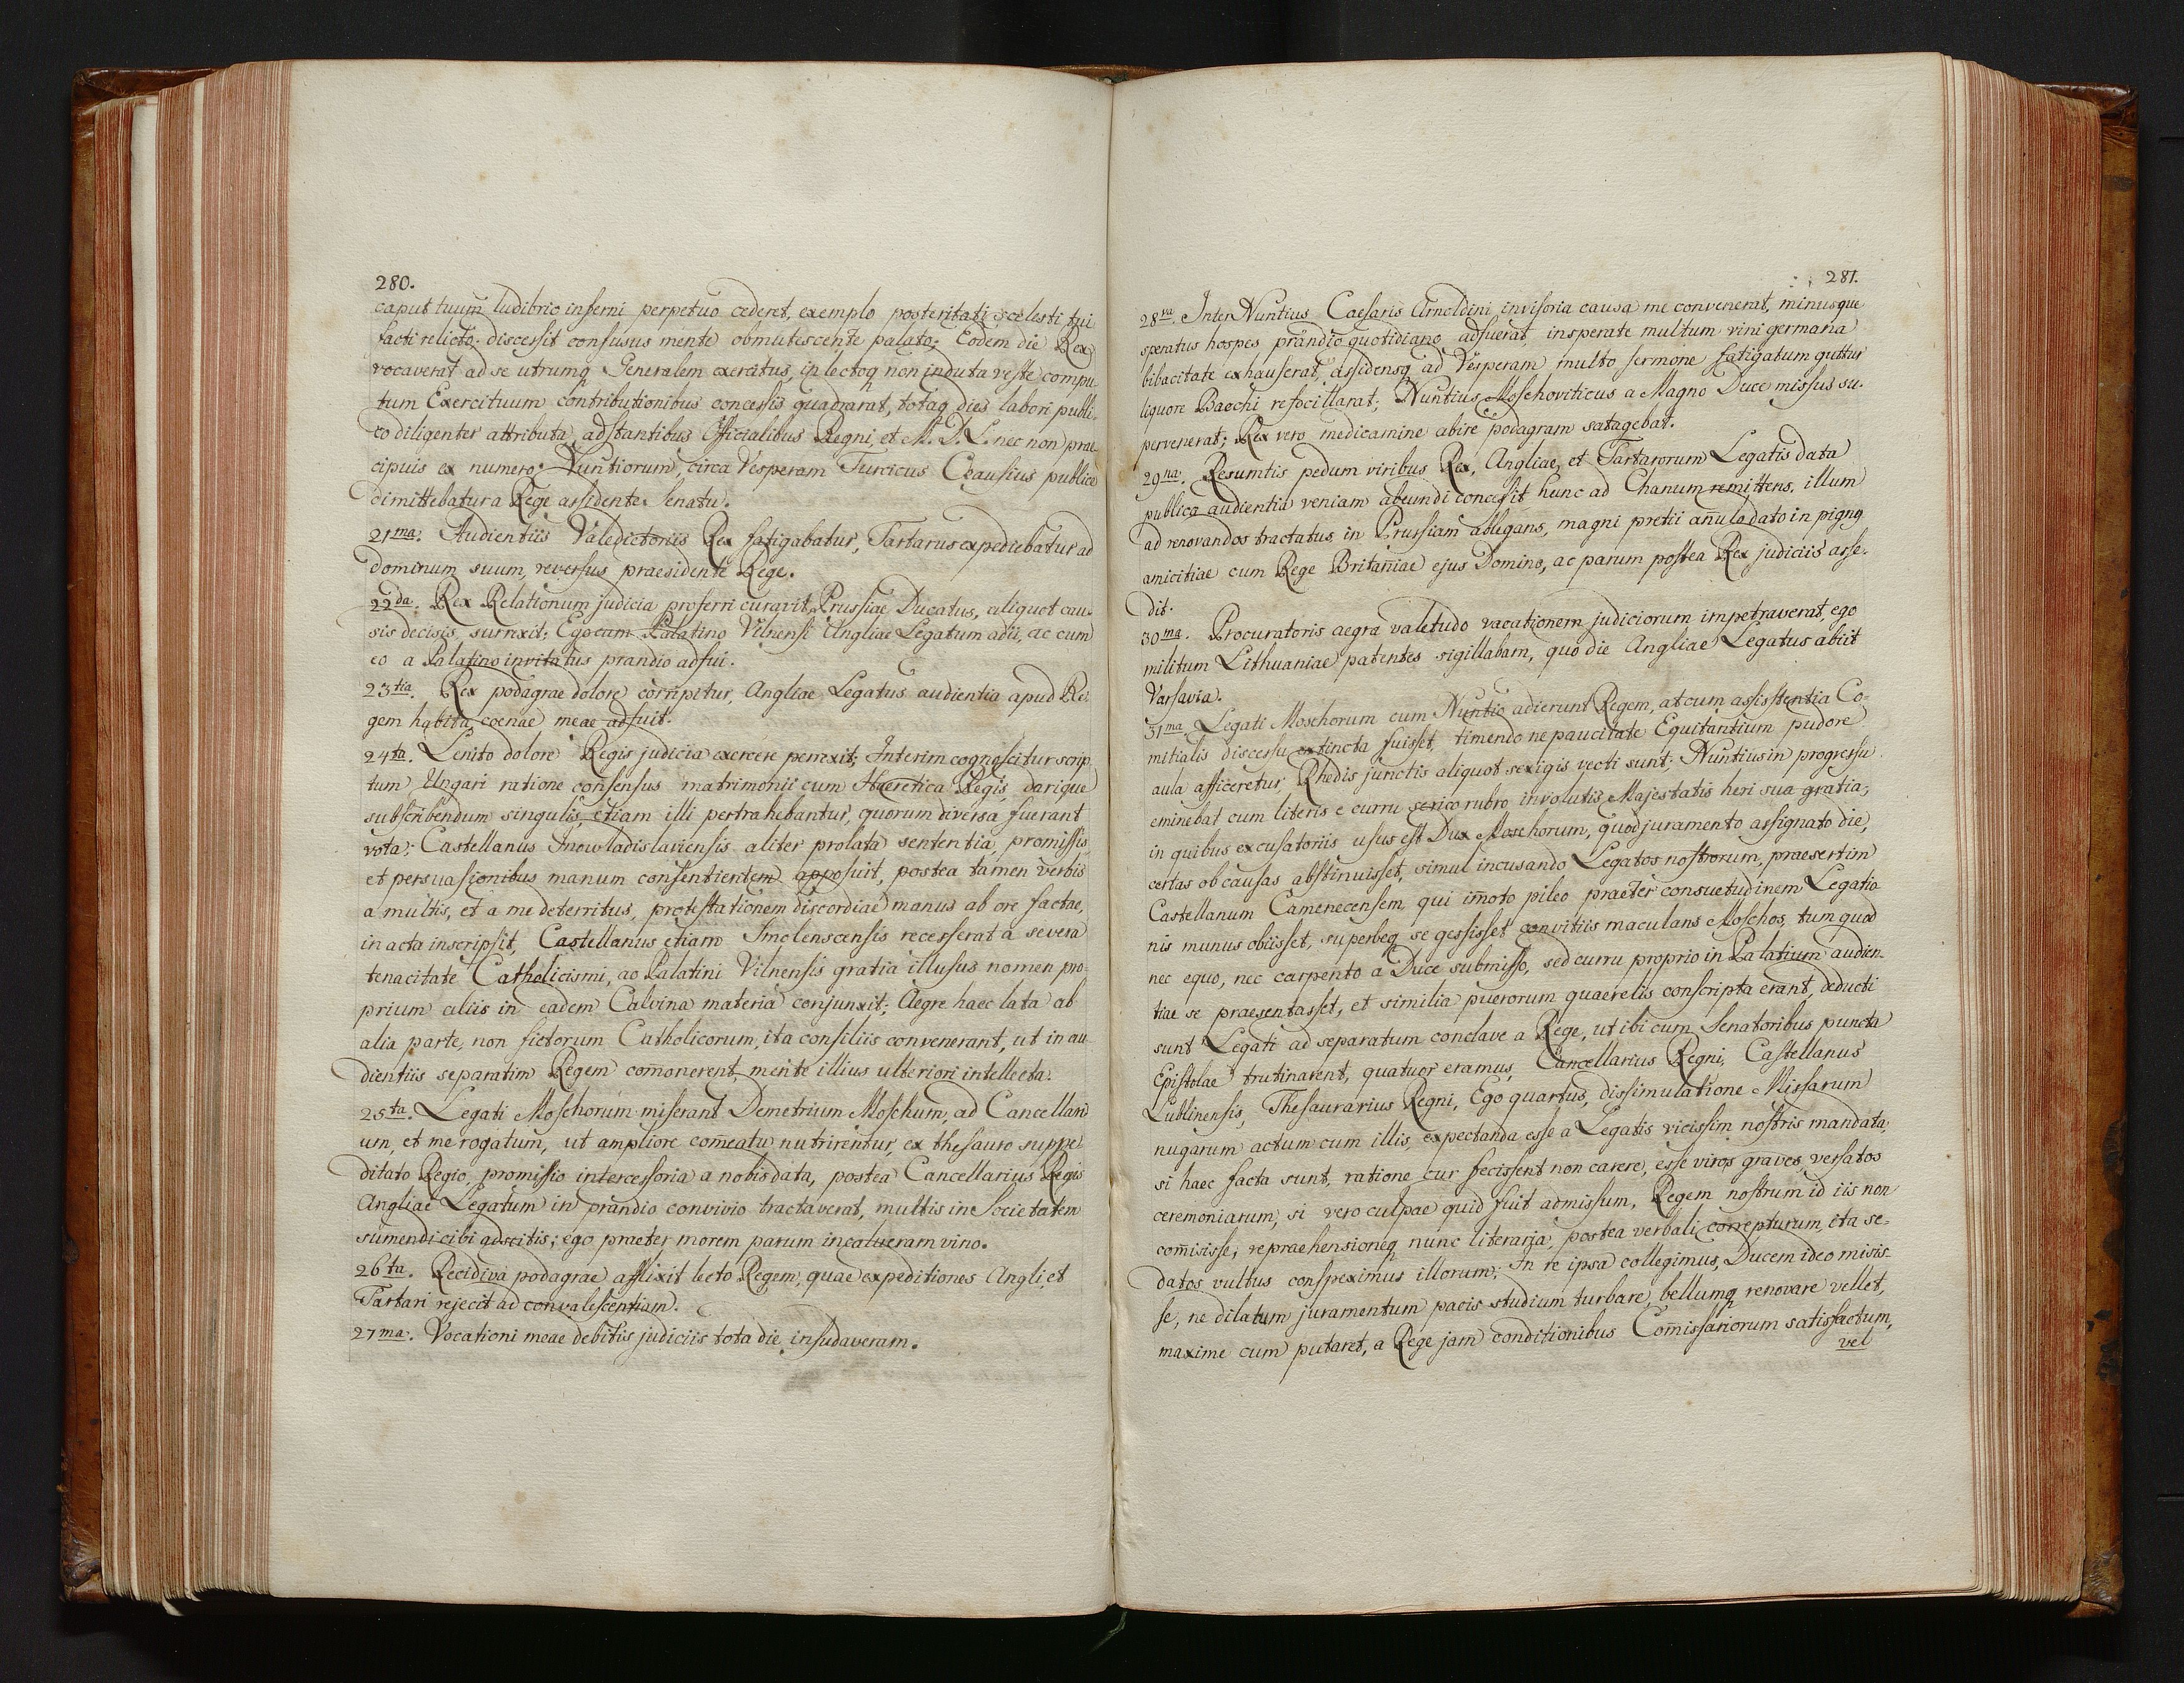 280.
caput tuum ludibrio inferni perpetuo cederet, exemplo posteritati scelesti tui
facti relicto; discessit confusus mente obmutescente palato; Eodem die Rex
vocaverat ad se utrumq Generalem exercitus, in lectoq non induta veste compu-
tum Exercituum contributionibus concessis quadrarat, totaq dies labori publi-
co diligenter attributa, adstantibus Officialibus Regni, et M. D. L. nec non prae-
cipuis ex numero Nuntiorum, circa Vesperam Turcicus Czausius publice
dimittebatur a Rege assidente Senatu.
21ma. Audientiis Valedictoriis Rex fatigabatur, Tartarus expediebatur ad
dominum suum, reversus praesidente Rege.
22da. Rex Relationum judicia proferri curavit, Prussiae Ducatus, aliquot cau-
sis decisis, surrexit; Ego cum Palatino Vilnensi Angliae Legatum adii, ac cum
eo a Palatino invitatus prandio adfui.
23tia. Rex podagrae dolore corripitur, Angliae Legatus audientia apud Re-
gem habita, coenae meae adfuit.
24ta. Lenito dolore Regis judicia exercere perrexit; Interim cognoscitur scrip-
tum Ungari ratione consensus matrimonii cum Haeretica Regis, darique
subscribendum singulis, etiam illi pertrahebantur, quorum diversa fuerant
vota; Castellanus Inowladislaviensis aliter prolata sententia, promissis
et persuasionibus manum consentientem apposuit, postea tamen verbis
a multis, et a me deterritus, protestationem discordiae manus ab ore factae,
in acta inscripsit, Castellanus etiam Smolenscensis recesserat a severa
tenacitate Catholicismi, ac Palatini Vilnensis gratia illusus nomen pro-
prium aliis in eadem Calvina materia conjunxit; Aegre haec lata ab
alia parte, non fictorum Catholicorum, ita consiliis convenerant, ut in au-
dientiis separatim Regem com̄onerent, mente illius ulteriori intellecta.
25ta. Legati Moschorum miserant Demetrium Moschum, ad Cancellari-
um, et me rogatum, ut ampliore com̄eatu nutrirentur, ex thesauro suppe-
ditato Regio, promissio intercessoria a nobis data, postea Cancellarius Regis
Angliae Legatum in prandio convivio tractaverat, multis in Societatem
sumendi cibi adscitis; ego praeter morem parum incalueram vino.
26ta. Recidiva podagrae afflixit lecto Regem, quae expeditiones Angli, et
Tartari rejecit ad convalescentiam.
27ma. Vocationi meae debitis judiciis tota die insudaveram.
281.
28va. Inter Nuntius Caesaris Arnoldini invisoria causa me convenerat, minusque
speratus hospes prandio quotidiano adfuerat, insperate multum vini germana
bibacitate exhauserat, assidensq ad Vesperam multo sermone fatigatum guttur
liquore Bacchi refocillarat; Nuntius Moschoviticus a Magno Duce missus su-
pervenerat; Rex vero medicamine abire podagram satagebat.
29na. Resumtis pedum viribus Rex, Angliae, et Tartarorum Legatis data
publica audientia veniam abeundi concessit hunc ad Chanum remittens, illum
ad renovandos tractatus in Prussiam ablegans, magni pretii an̄ulo dato in pigng
amicitiae cum Rege Britan̄iae ejus Domino, ac parum postea Rex judiciis asse-
dit.
30ma. Procuratoris aegra valetudo vacationem judiciorum impetraverat, ego
militum Lithuaniae patentes sigillabam, quo die Angliae Legatus abiit
Varsavia.
31ma. Legati Moschorum cum Nuntio adierunt Regem, at cum assistentia Co-
mitialis discessu extincta fuisset, timendo ne paucitate Equitantium pudore
aula afficeretur, Rhedis junctis aliquot sexigis vecti sunt; Nuntius in progressu
eminebat cum literis e curru serico rubro involutis Majestatis heri sua gratia;
in quibus excusatoriis usus est Dux Moschorum, quod juramento assignato die,
certas ob causas abstinuisset, simul incusando Legatos nostrorum, praesertim
Castellanum Camenecensem, qui im̄oto pileo praeter consuetudinem Legatio-
nis munus obiisset, superbeq se gessisset convitiis maculans Moschos, tum quod
nec equo, nec carpento a Duce submisso, sed curru proprio in Palatium audien-
tiae se praesentasset, et similia puerorum quaerelis conscripta erant, deducti
sunt Legati ad separatum conclave a Rege, ut ibi cum Senatoribus puncta
Epistolae trutinarent, quatuor eramus, Cancellarius Regni, Castellanus
Lublinensis, Thesaurarius Regni, Ego quartus, dissimulatione Missarum
nugarum actum cum illis, expectanda esse a Legatis vicissim nostris mandata;
si haec facta sunt, ratione cur fecissent non carere, esse viros graves, versatos
ceremoniarum; si vero culpae quid fuit admissum, Regem nostrum id iis non
com̄isisse; repraehensioneq nunc literaria, postea verbali correpturum, ita se-
datos vultus conspeximus illorum; In re ipsa collegimus, Ducem ideo misis-
se, ne dilatum juramentum pacis studium turbare, bellumq renovare vellet,
maxime cum putaret, a Rege jam conditionibus Com̄issariorum satisfactum,
vel